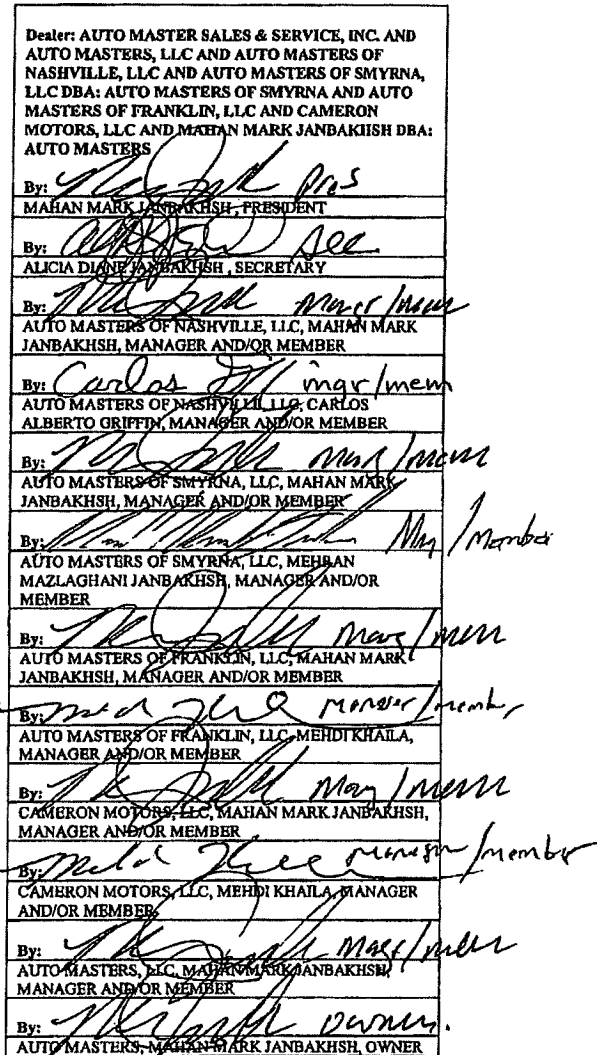 Dealer: AUTO MASTER SALES & SERVICE, INC. AND
AUTO MASTERS, LLC AND AUTO MASTERS OF
NASHVILLE, LLC AND AUTO MASTERS OF SMYRNA,
LLC DBA: AUTO MASTERS OF SMYRNA AND AUTO
MASTERS OF FRANKLIN, LLC AND CAMERON
MOTORS, LLC AND MAHAN MARK JANBAKHSH DBA:
AUTO MASTERS
By: Pres
MAHAN MARK JANBAKHSH, PRESIDENT
By: Sec
ALICIA DIANE JANBAKHSH, SECRETARY
By:
AUTO MASTERS OF NASHVILLE, LLC, MAHAN MARK
JANBAKHSH, MANAGER AND/OR MEMBER
By: Carlos mgr/mem
AUTO MASTERS OF NASHVILLE, LLC, CARLOS
ALBERTO GRIFFIN, MANAGER AND/OR MEMBER
By:
AUTO MASTERS OF SMYRNA, LLC, MAHAN MARK
JANBAKHSH, MANAGER AND/OR MEMBER
By:
AUTO MASTERS OF SMYRNA, LLC, MEHRAN
MAZLAGHANI JANBAKHSH, MANAGER AND/OR
MEMBER
By:
AUTO MASTERS OF FRANKLIN, LLC, MAHAN MARK
JANBAKHSH, MANAGER AND/OR MEMBER
By:
AUTO MASTERS OF FRANKLIN, LLC, MEHDI KHAILA,
MANAGER AND/OR MEMBER
By:
CAMERON MOTORS, LLC, MAHAN MARK JANBAKHSH,
MANAGER AND/OR MEMBER
By: /member
CAMERON MOTORS, LLC, MEHDI KHAILA, MANAGER
AND/OR MEMBER
By:
AUTO MASTERS, LLC, MAHAN MARK JANBAKHSH,
MANAGER AND/OR MEMBER
By: owner.
AUTO MASTERS, MAHAN MARK JANBAKHSH, OWNER